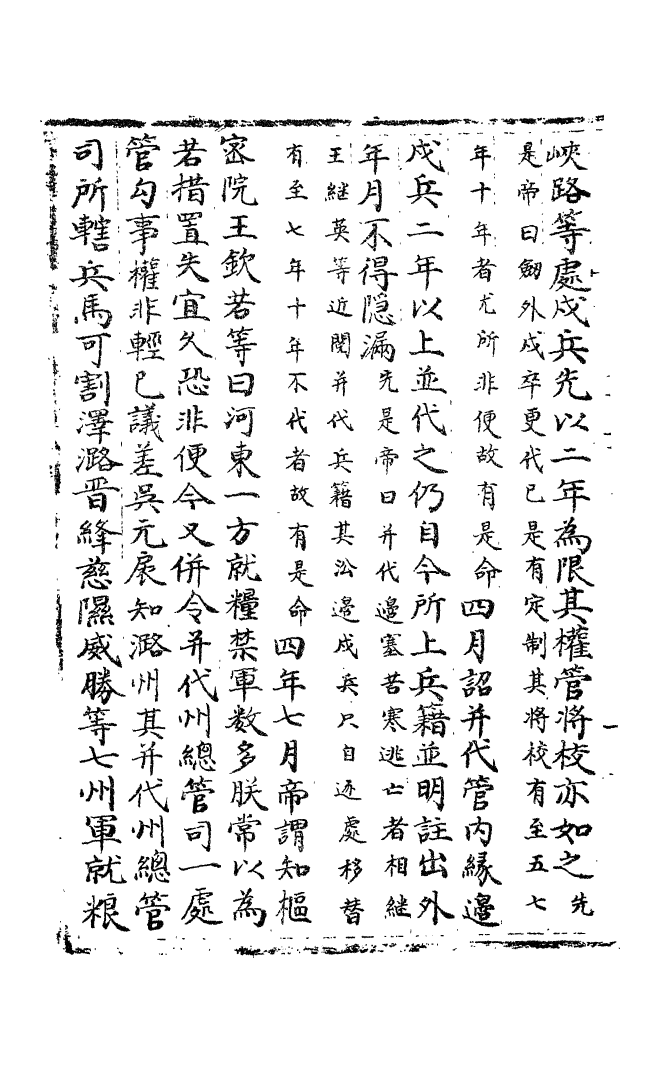 峽路等處戍兵先以二年為限其權管將校亦如之先
是帝曰劒外戍卒更代已是有定制其將校有至五七
年十年者尤所非便故有是命四月詔并代管内緣邉
戍兵二年以上並代之仍自今所上兵籍並明註出外
年月不得隐漏先是帝曰并代邉塞苦寒逃亡者相継
王継英等近閱并代兵籍其㳂邉戍兵只自逐處移替
有至七年十年不代者故有是命四年七月帝謂知樞
宻院王欽若等曰河東一方就糧禁軍数多朕常以為
若措置失宜久恐非便今又併令并代州總管司一處
管勾事權非輕已議差吳元扆知潞州其并代州總管
司所轄兵馬可割澤潞晋絳慈隰威勝等七州軍就粮